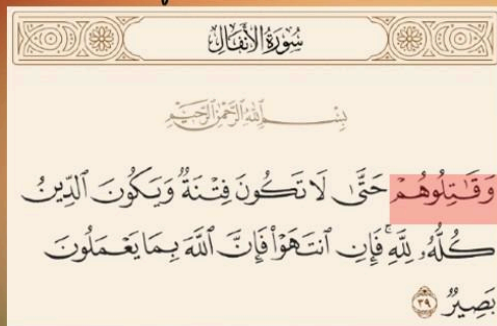 سُورَةُ الْأَنْفَالِ
بِسْمِ اللَّهِ الرَّحْمَٰنِ الرَّحِيمِ
وَقَٰتِلُوهُمْ حَتَّىٰ لَا تَكُونَ فِتْنَةٌ وَيَكُونَ ٱلدِّينُ
كُلُّهُۥ لِلَّهِۚ فَإِنِ ٱنتَهَوْا۟ فَإِنَّ ٱللَّهَ بِمَا يَعْمَلُونَ
بَصِيرٌ ٣٩